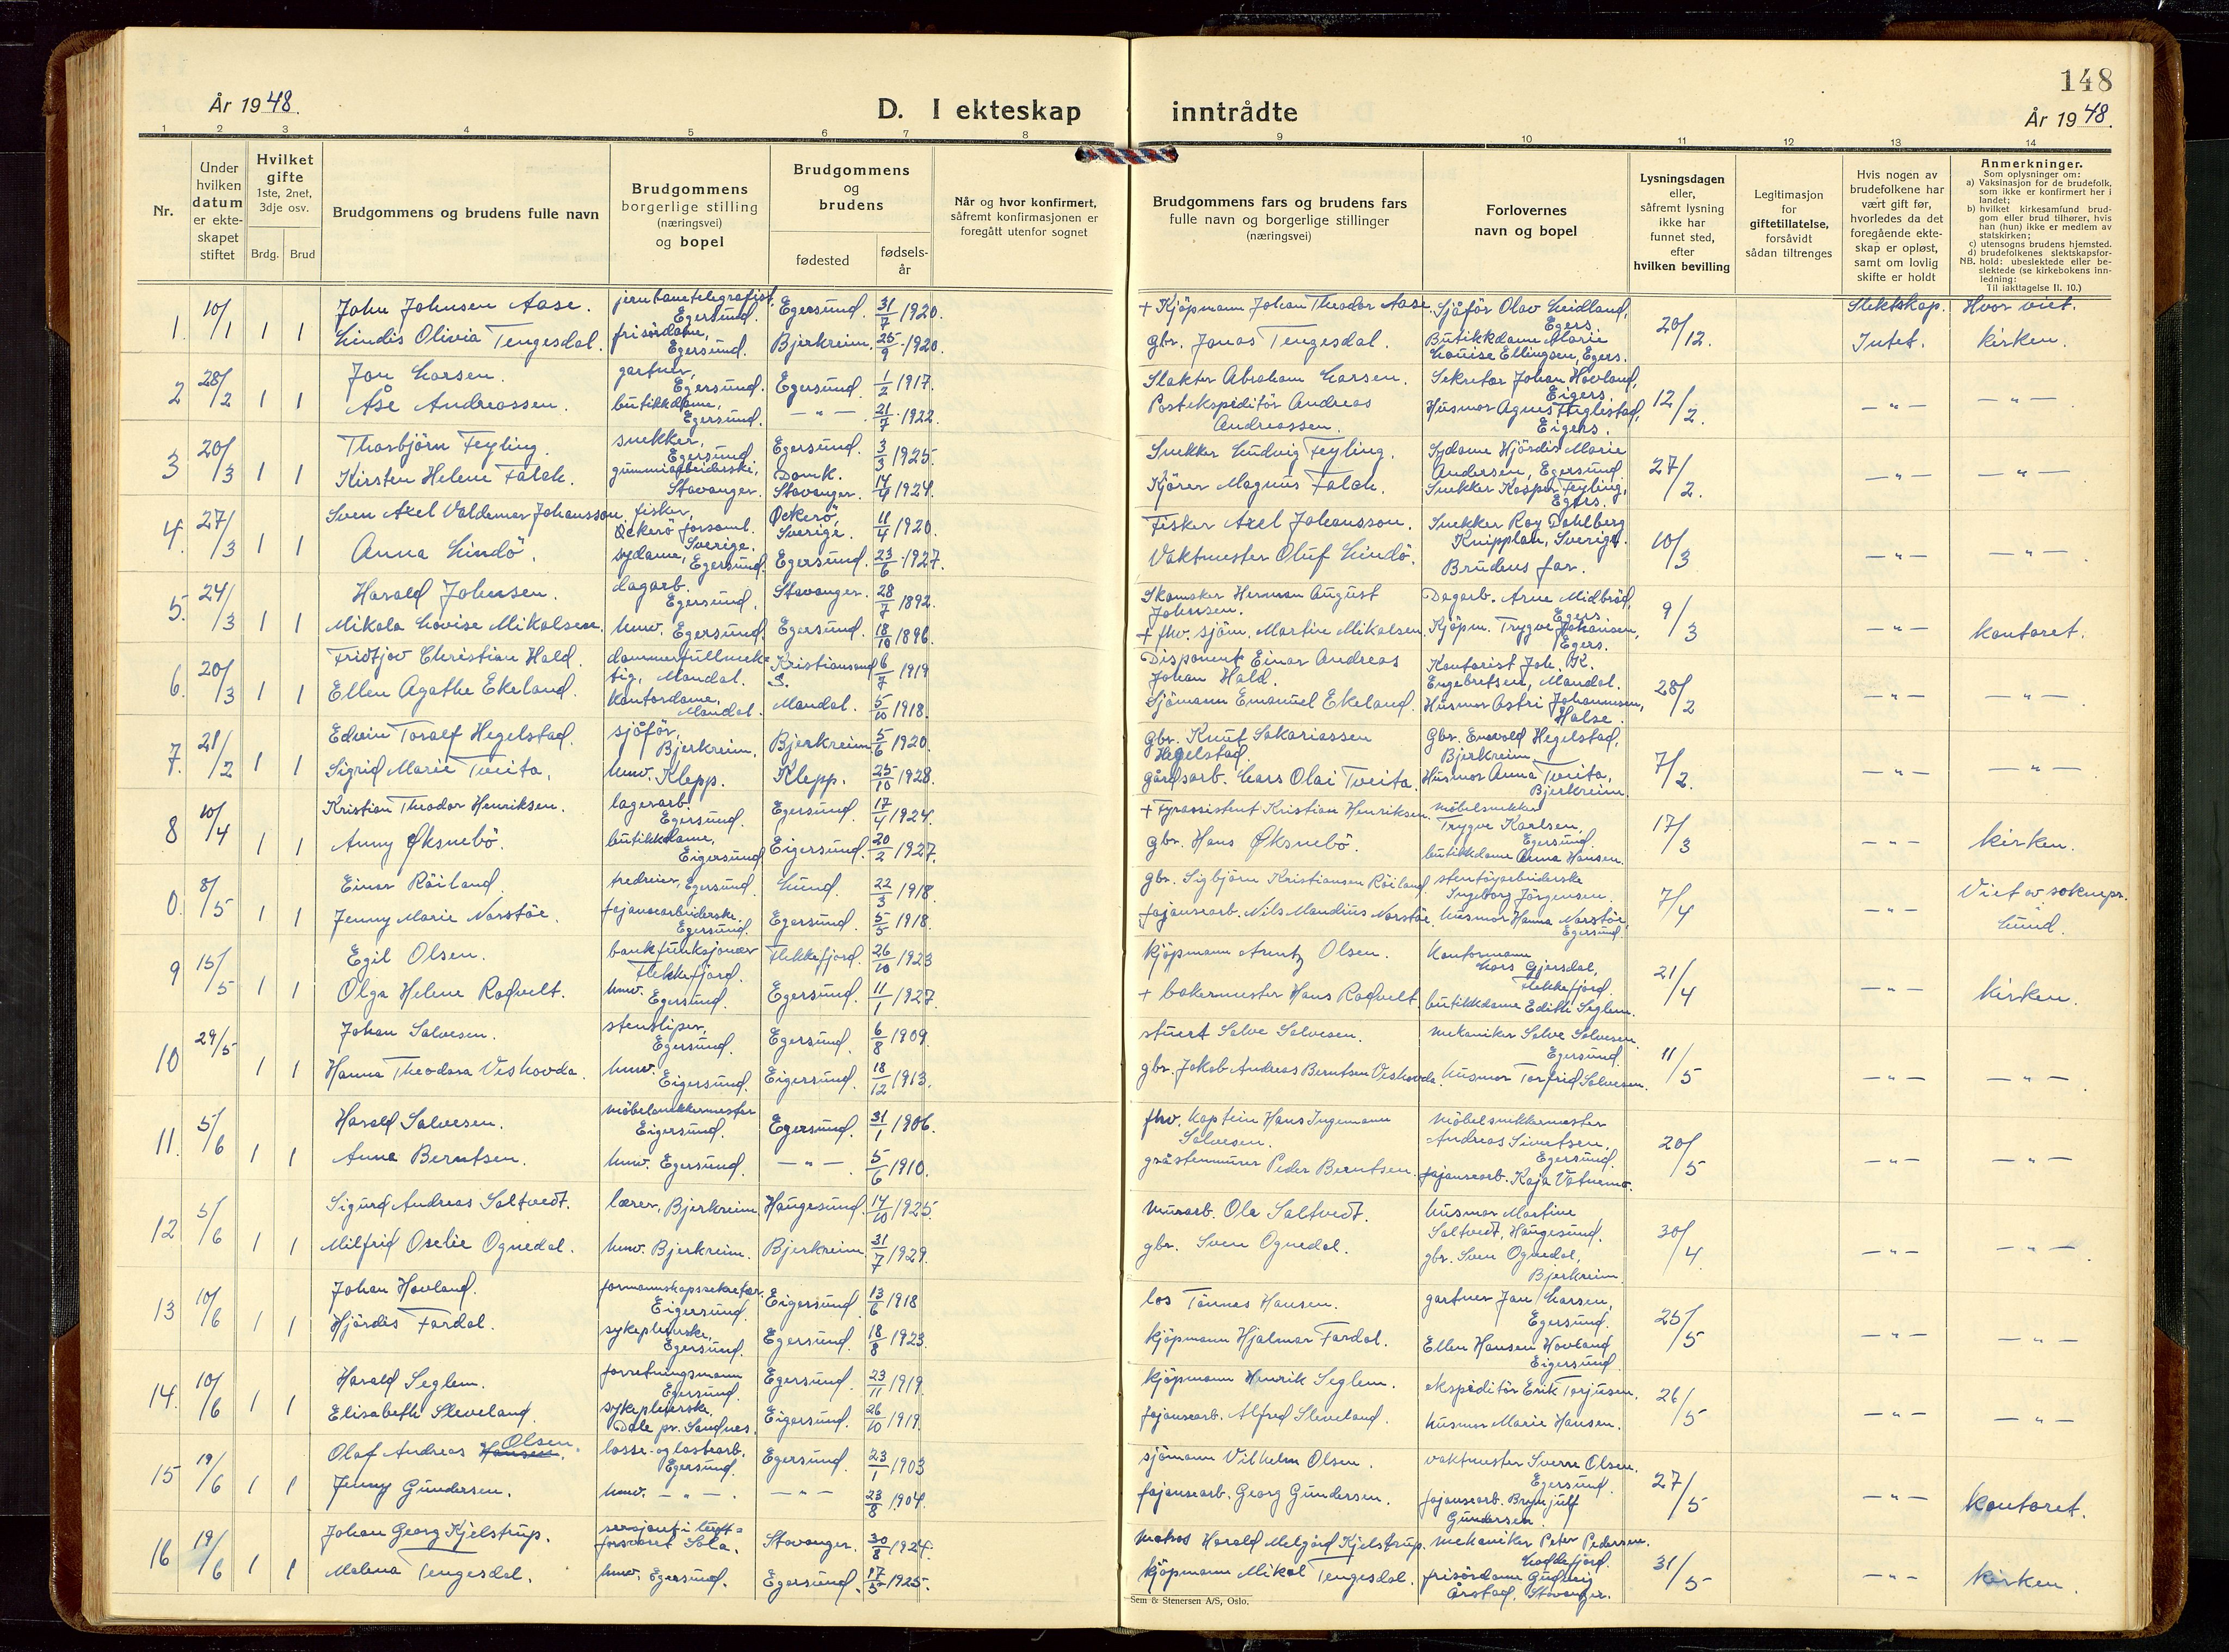 148
År 1948.
D. I ekteskap inntrådte
År 1948.
1 2 3 4 5 6 7 8 9 10 11 12 13 14
Nr.
Under hvilken datum er ekteskapet stiftet
Hvilket gifte 1ste, 2net, 3dje osv.
Brdg. Brud
Brudgommens og brudens fulle navn
Brudgommens borgerlige stilling (næringsvei) og bopel
Brudgommens og brudens
fødested
fødselsår
Når og hvor konfirmert, såfremt konfirmasjonen er foregått utenfor sognet
Brudgommens fars og brudens fars fulle navn og borgerlige stillinger (næringsvei)
Forlovernes navn og bopel
Lysningsdagen eller, såfremt lysning ikke har funnet sted, efter hvilken bevilling
Legitimasjon for giftetillatelse, forsåvidt sådan tiltrenges
Hvis nogen av brudefolkene har vært gift før, hvorledes da det foregående ekteskap er opløst, samt om lovlig skifte er holdt
Anmerkninger.
Som oplysninger om:
a) Vaksinasjon for de brudefolk, som ikke er konfirmert her i landet;
b) hvilket kirkesamfund brudgom eller brud tilhører, hvis han (hun) ikke er medlem av statskirken;
c) utensogns brudens hjemsted.
d) brudefolkenes slektskapsforhold: ubeslektede eller beslektede (se kirkebokens innledning:
NB. Til iakttagelse II. 10.)
1. 10/1 1 1 John Johnsen Aase. jernbanetelegrafist, Egersund. Egersund. 31/7 1920. + Kjöpmann Johan Theodor Aase. Sjåför Olav Lindland, Egers. 20/12. Slektskap. Hvor viet.
Lindis Olivia Tengesdal. frisördame, Egersund. Bjerkreim. 25/9 1920. gbr. Jonas Tengesdal. Butikkdame Marie Louise Ellingsen, Egers. Intet. kirken.
2 28/2 1 1 Jon Larsen. gartner, Egersund. Egersund. 1/2 1917. Slakter Abraham Larsen. Sekretær Johan Hovland, Eigers. 12/2. — " — — " —
Åse Andreassen. butikkdame, Egersund. — " — 21/7 1922. Postekspeditör Andreas Andreassen. Husmor Agnes Eigers.
3 20/3 1 1 Thorbjörn Feyling. snekker, Egersund. Egersund. 3/3 1925. Snekker Ludvig Feyling. Sydame Hjördis Marie Andersen, Egersund. 27/2. — " — — " —
Kirsten Helene Falch. gummiarbeiderske, Stavanger. Domk. Stavanger. 14/4 1924. Kjörer Magnus Falch. Snekker Kasper Feyling, Egers.
4. 27/3 1 1 Sven Axel Valdemar Johansson fisker, Öckerö forsaml. Sverige. Öckerö, Sverige. 11/4 1920. Fisker Axel Johansson. Snekker Roy Dahlberg Knipplan, Sverige. 10/3 — " — — " —
Anna Lindö. sydame, Egersund. Egersund. 23/6 1927. Vaktmester Oluf Lindö. Brudens far.
5. 24/3 1 1 Harald Johnsen. dagarb. Egersund. Stavanger. 28/7 1892. Skomaker Herman August Johnsen. Dagarb. Arne Midbröd, Egers. 9/3 — " — kontoret.
Mikala Lovise Mikalsen. hmv. Egersund. Egersund. 18/10 1896. + fhv. sjöm. Martin Mikalsen. Kjöpm. Trygve Johansen, Egers.
6. 20/3 1 1 Fridtjov Christian Hald. dommerfullmektig, Mandal. Kristiansand S. 6/7 1919 Disponent Einar Andreas Johan Hald. Kontorist Joh. K. Engebretsen, Mandal. 28/2 — " — — " —
Ellen Agathe Ekeland. kontordame, Mandal. Mandal. 5/10 1918. Sjömann Emanuel Ekeland. Husmor Astri Johannesen, Halse.
7. 21/2 1 1 Edvin Toralf Hegelstad. sjåför, Bjerkreim. Bjerkreim 5/6 1920. Gbr. Knut Sakariassen Hegelstad. Gbr. Enevold Hegelstad, Bjerkreim 7/2. — " — — " —
Sigrid Marie Tveita. hmv. Klepp. Klepp. 25/10 1928. gårdsarb. Lars Olai Tveita. Husmor Anna Tveita, Bjerkreim
8 10/4 1 1 Kristian Theodor Henriksen. lagerarb. Egersund. Egersund. 17/4 1924. + Fyrassistent Kristian Henriksen. möbelsnekker Trygve Karlsen, Egersund. 17/3 — " — kirken.
Anny Øksnebö. butikkdame, Eigersund Eigersund. 20/2 1927. gbr. Hans Øksnebö. butikkdame Anna Hansen.
0. 8/5 1 1 Einar Röiland. tredreier, Egersund. Lund. 22/3 1918. gbr. Sigbjörn Kristiansen Röiland. stentöyarbeiderske Ingeborg Jörgensen 7/4 — " — Viet av soknepr. Lund.
Jenny Marie Norstöe. fajansearbeiderske. Egersund. Egersund. 5/5 1918. fajansearb. Nils Mandius Norstöe. husmor Hanna Norstöe, Egersund.
9 15/5 1 1 Egil Olsen. bankfunksjonær Flekkefjord. Flekkefjord. 26/10 1923 kjöpmann Arentz Olsen. kontormann Lars Gjersdal, Flekkefjord. 21/4 — " — kirken.
Olga Helene Rodvelt. hmv. Egersund. Egersund. 11/1 1927. + bakermester Hans Rodvelt. butikkdame Edith Seglem.
10 29/5 1 1 Johan Salvesen. stensliper, Egersund. Egersund. 6/8 1909. stuert Salve Salvesen. mekaniker Salve Salvesen. Egersund. 11/5 — " — — " —
Hanna Theodora Veshovda. hmv. Eigersund. Eigersund. 18/12 1913. gbr. Jakob Andreas Berntsen Veshovda. husmor Torfrid Salvesen.
11. 5/6 1 1 Harald Salvesen. möbelsnikkermester Eigersund. Egersund. 31/1 1906. fhv. kaptein Hans Ingemann Salvesen. möbelsnikkermester Andreas Sivertsen, Egersund. 20/5 — " — — " —
Anna Berntsen. hmv. Egersund. — " — 5/6 1910. gråstenmurer Peder Berntsen. fajansearb. Kaja Vatnemo.
12 5/6 1 1 Sigurd Andreas Saltvedt. lærer, Bjerkreim. Haugesund. 14/10 1925. murarb. Ola Saltvedt. husmor Martine Saltvedt, Haugesund. 30/4. — " — — " —
Milfrid Oselie Ognedal. hmv. Bjerkreim. Bjerkreim. 31/7 1929. gbr. Sven Ognedal. gbr. Sven Ognedal, Bjerkreim.
13 10/6 1 1 Johan Hovland. formannskapssekretær. Eigersund. Eigersund. 13/6 1918 los Tönnes Hansen. gartner Jan Larsen, Egersund. 25/5 — " — — " —
Hjördis Fardal. sykepleierske, Egersund. Egersund. 18/8 1923. kjöpmann Hjalmar Fardal. Ellen Hansen Hovland Eigersund.
14. 10/6 1 1 Harald Seglem. forretningsmann Egersund. Egersund. 23/11 1919. kjöpmann Henrik Seglem. ekspeditör Erik Torjusen. 26/5 — " — — " —
Elisabeth Sleveland. sykepleierske, Dale pr. Sandnes. Eigersund. 26/10 1919. fajansearb. Alfred Sleveland. husmor Marie Hansen.
15 19/6 1 1 Olaf Andreas Hansen. Olsen. losse- og lastearb. Egersund. Egersund. 23/1 1903 sjömann Vilhelm Olsen. vaktmester Sverre Olsen. Egersund. 27/5 — " — kontoret.
Jenny Gundersen. hmv. — " — . — " — 23/8 1904. fajansearb. Georg Gundersen. fajansearb. Brynjulf Gundersen.
16 19/6 1 1 Johan Georg Kjelstrup. sersjant i luftforsvaret Sola. Stavanger. 30/8 1924. matros Harald Melgård Kjelstrup. mekaniker Peter Pedersen. Loddefjord. 31/5 — " — kirken.
Malena Tengesdal. hmv. Egersund. Egersund. 17/5 1925. kjöpmann Mikal Tengesdal. frisördame Gudveig Årstad, Stavanger.
Sem & Stenersen A/S, Oslo.